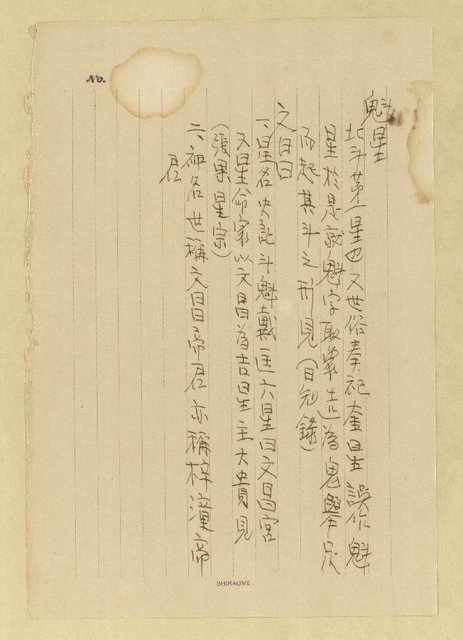 No.
魁星
北斗第一星也又世俗奏祀奎星誤作魁
星於是就魁字取象造為鬼舉足
而起其斗之形見(日知錄)
文昌
一星名史記斗魁戴匡六星曰文昌宮
又星命家以文昌為吉星主大貴見
(張果星宗)
二神名世稱文昌帝君亦稱梓潼帝
君
SHIRAUME